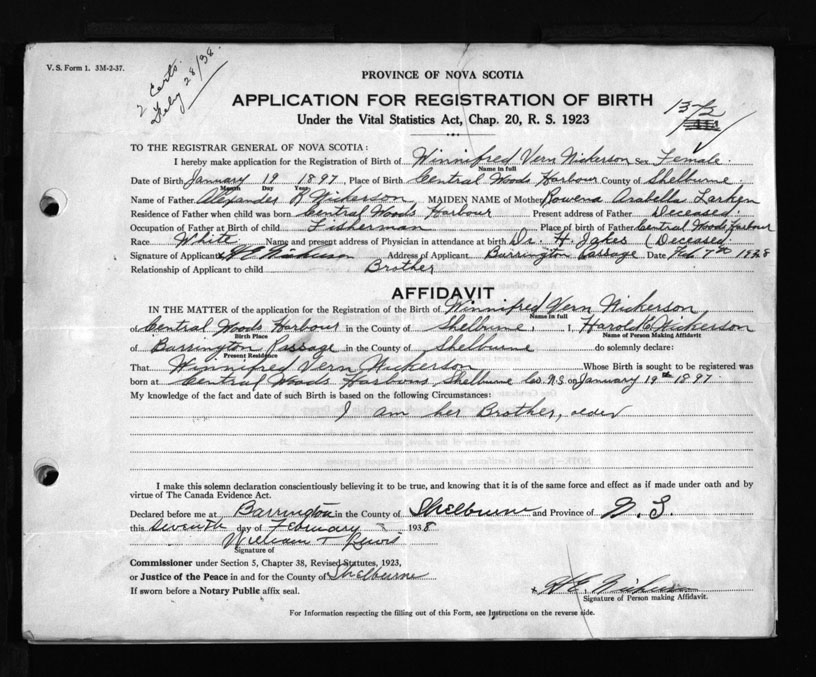 V. S. Form 1. 3M-2-37.
2 Certs.
Feby 28/38.
PROVINCE OF NOVA SCOTIA
APPLICATION FOR REGISTRATION OF BIRTH
Under the Vital Statistics Act, Chap. 20, R. S. 1923
TO THE REGISTRAR GENERAL OF NOVA SCOTIA:
I hereby make application for the Registration of Birth of Winnifred Vern Nickerson Sex Female.
Name in full
Date of Birth January 19 1897, Place of Birth Central Woods Harbour County of Shelburne
Month Day Year
Name of Father Alexander Nickerson MAIDEN NAME of Mother Rowena Arabella Larkin
Residence of Father when child was born Central Woods Harbour Present address of Father Deceased.
Occupation of Father at Birth of child Fisherman Place of Birth of Father Central Woods Harbour
Race White Name and present address of Physician in attendance at birth Dr. H. Jakes (Deceased
Signature of Applicant Nickerson Address of Applicant Barrington Passage Date Feb 7th 1938
Relationship of Applicant to child Brother
AFFIDAVIT
IN THE MATTER of the application for the Registration of the Birth of Winnifred Vern Nickerson
Name in full
of Central Woods Harbour in the County of Shelburne, I, Harold Nickerson
Birth Place Name of Person Making Affidavit
of Barrington Passage in the County of Shelburne do solemnly declare:
Present Residence
That Winnifred Vern Nickerson Whose Birth is sought to be registered was
born at Central Woods Harbour, Shelburne Co. N.S on January 19th 1897
My knowledge of the fact and date of such Birth is based on the following Circumstances:
I am her Brother, older
I make this solemn declaration conscientiously believing it to be true, and knowing that it is of the same force and effect as if made under oath and by
virtue of The Canada Evidence Act.
Declared before me at Barrington in the County of Shelburne and Province of N. S.
this seventh day of February 1938
William T Lewis
Signature of
Commissioner under Section 5, Chapter 38, Revised Statutes, 1923,
or Justice of the Peace in and for the County of Shelburne
If sworn before a Notary Public affix seal.
x Nickerson
Signature of Person making Affidavit.
For Information respecting the filling out of this Form, see Instructions on the reverse side.